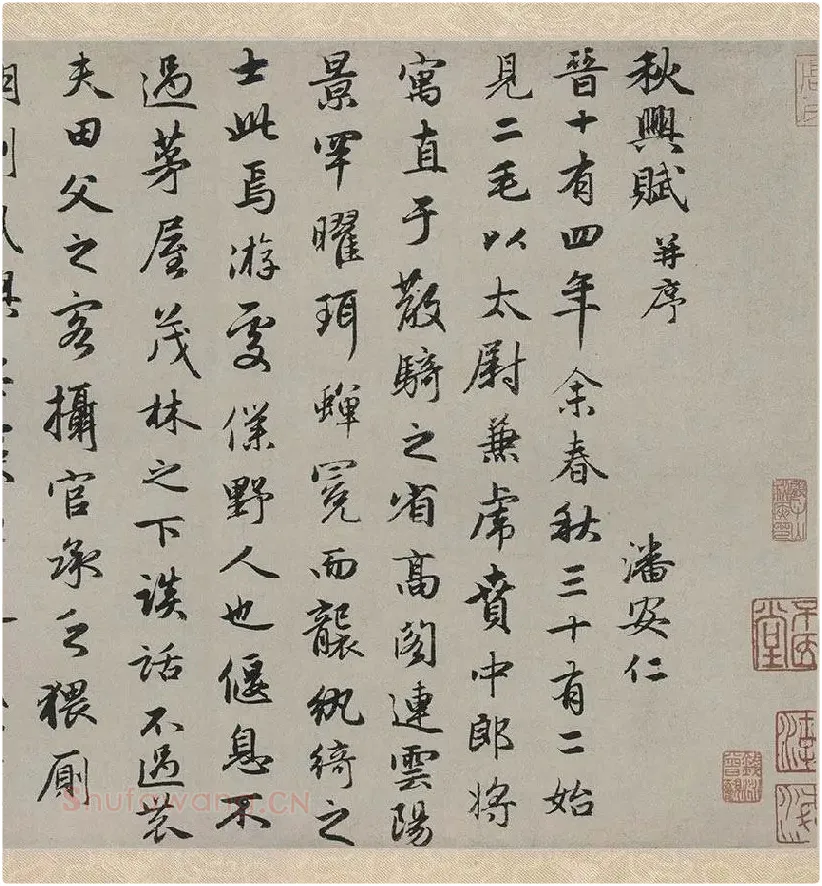 秋興賦 并序 潘安仁
晉十有四年余春秋三十有二始
見二毛以太尉兼虎賁中郎將
寓直于散騎之省高閣連雲陽
景罕曜珥蟬冕而襲紈綺之
士此焉游處僕野人也偃息不
過茅屋茂林之下談話不過農
夫田父之客攝官承乏猥廁
Shufawang.CN